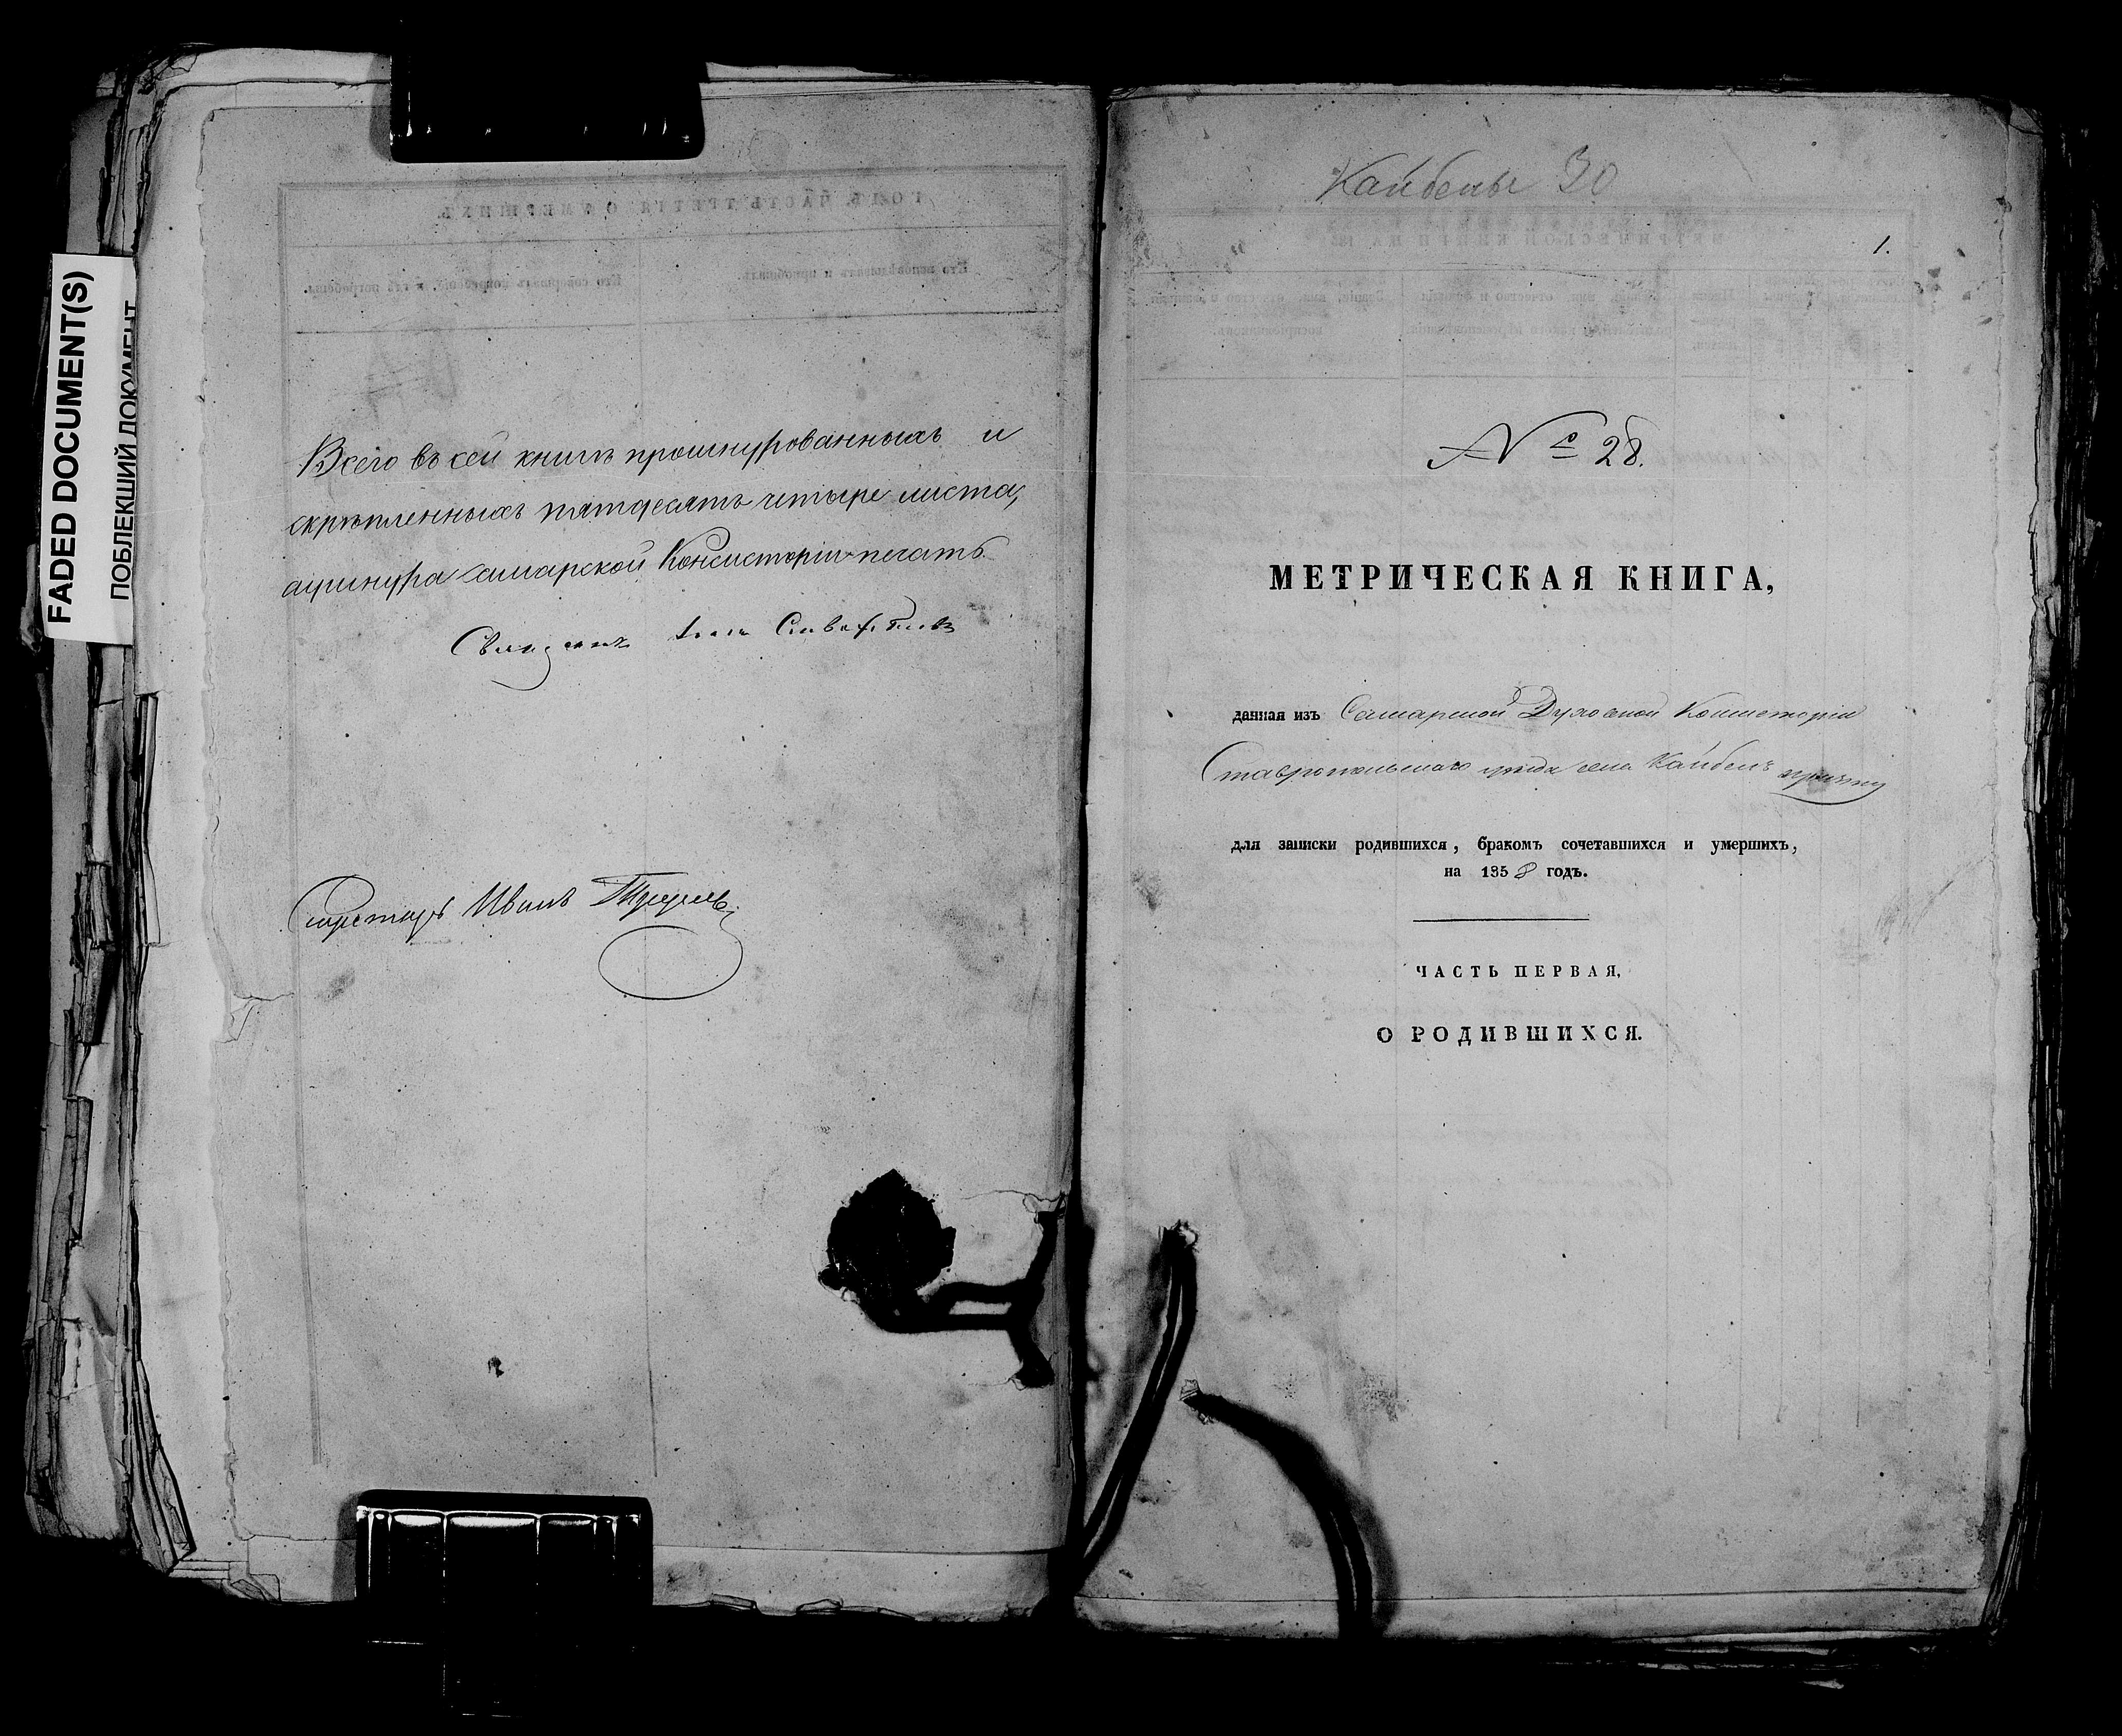 FADED DOCUMENT(S)
ПОБЛЕКШИЙ ДОКУМЕНТ
Всего въ сей книгѣ прошнурованныхъ и
скрѣпленныхъ пятдесятъ четыре листа,
а у шнура Самарской Консисторіи печать
Священникъ
Секретарь Иванъ
Кайбелы 30
1.
№ 28.
МЕТРИЧЕСКАЯ КНИГА,
данная изъ Самарской Духовной Консисторіи
Ставропольскаго уѣзда села Кайбелъ причту
для записки родившихся, бракомъ сочетавшихся и умершихъ,
на 1858 годъ.
ЧАСТЬ ПЕРВАЯ,
О РОДИВШИХСЯ.